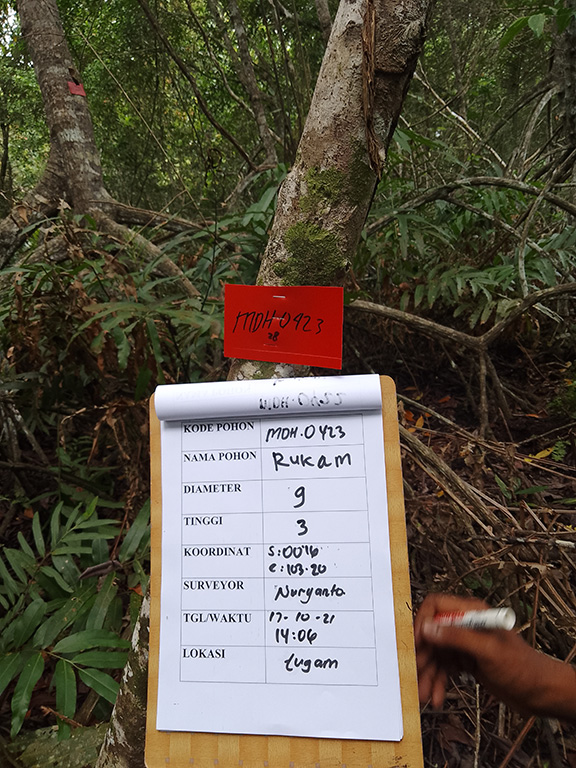 MDH-0423
28
KODE POHON MDH.0423
NAMA POHON RUKAM
DIAMETER 9
TINGGI 3
KOORDINAT S:0016
E:103.20
SURVEYOR Nuryanto
TGL/WAKTU 17-10-21
14:06
LOKASI Lugam